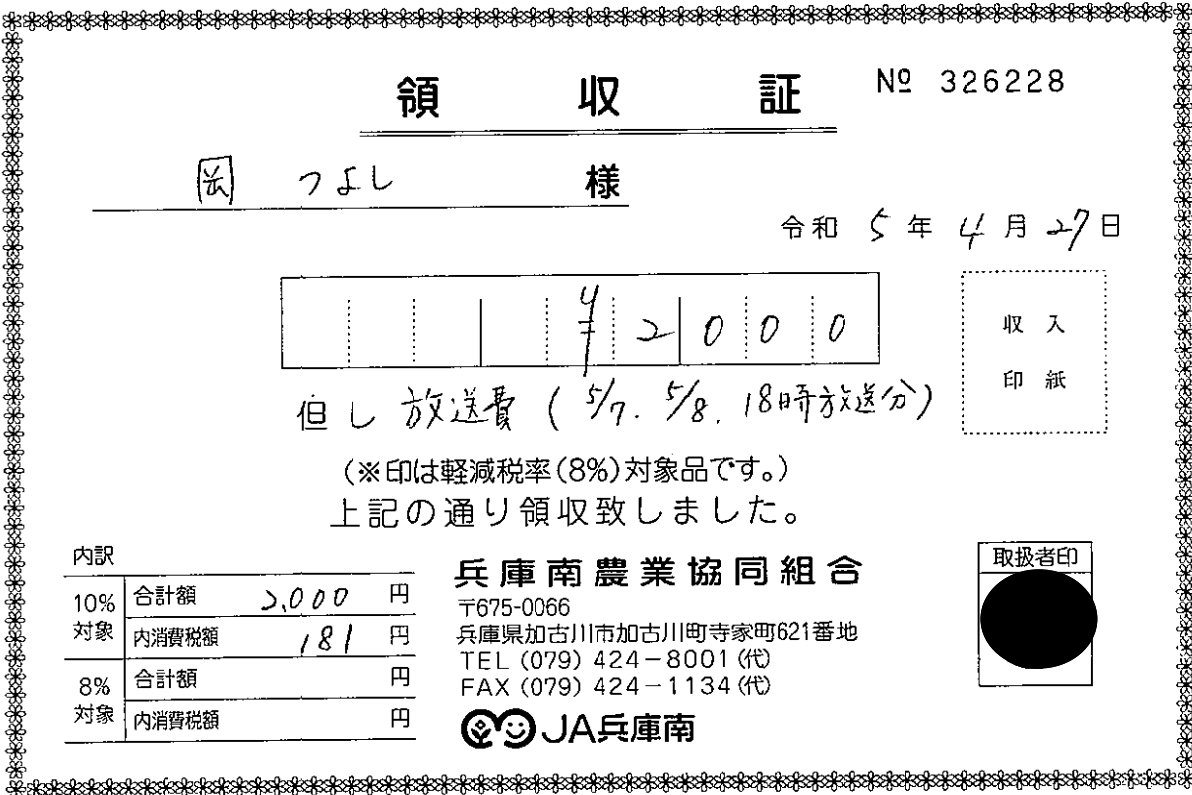 領収証 № 326228
岡 つよし 様
令和 5 年 4 月 27 日
¥2000
収入
印紙
但し 放送費 ( 5/7. 5/8. 18時放送分)
(※印は軽減税率(8%)対象品です。)
上記の通り領収致しました。
内訳
10%対象 合計額 2,000 円
内消費税額 181 円
8%対象 合計額 円
内消費税額 円
兵庫南農業協同組合
〒675-0066
兵庫県加古川市加古川町寺家町621番地
TEL (079) 424-8001 (代)
FAX (079) 424-1134 (代)
JA兵庫南
取扱者印